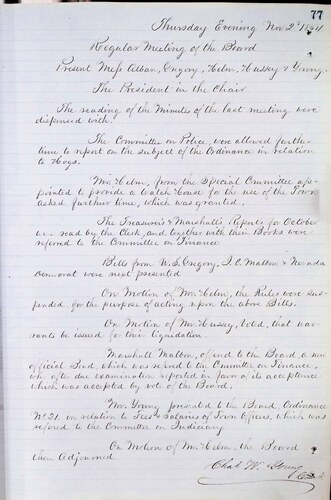 77
Thursday Evening Nov 2d
Regular Meeting of the Board
Present Mess Alban, Gregory, Helm, Hussey & Young.
The President in the Chair.
The reading of the Minutes of the last meeting were
dispensed with.
The Committee on Police, were allowed further
time to report on the subject of the Ordinance in relation
to Hogs.
Mr. Helm, from the Special Committee ap-
pointed to provide a Watch House for the use of the Town
asked further time, which was granted.
The Treasurer's & Marshall's Reports for October
were read by the Clerk, and together with their Books were
referred to the Committee on Finance
Bills from Gregory, Mallow & Nevada
Democrat were next presented
On Motion of Mr. Helm, the Rules were sus-
pended, for the purpose of acting upon the above Bills.
On Motion of Mr. Hussey, Voted, that war-
rants be issued for their liquidation.
Marshall offered to the Board, a new
official Bond, which was referred to the Committee on Finance,
who after due examination reported in favor of its acceptance
which was accepted by vote of the Board.
Mr. Young presented to the Board, Ordinance
No 21. in relation to Fees & Salaries of Town Officers, which was
referred to the Committee on Judiciary
On Motion of Mr. Helm, the Board
then Adjourned
Chas W. Young